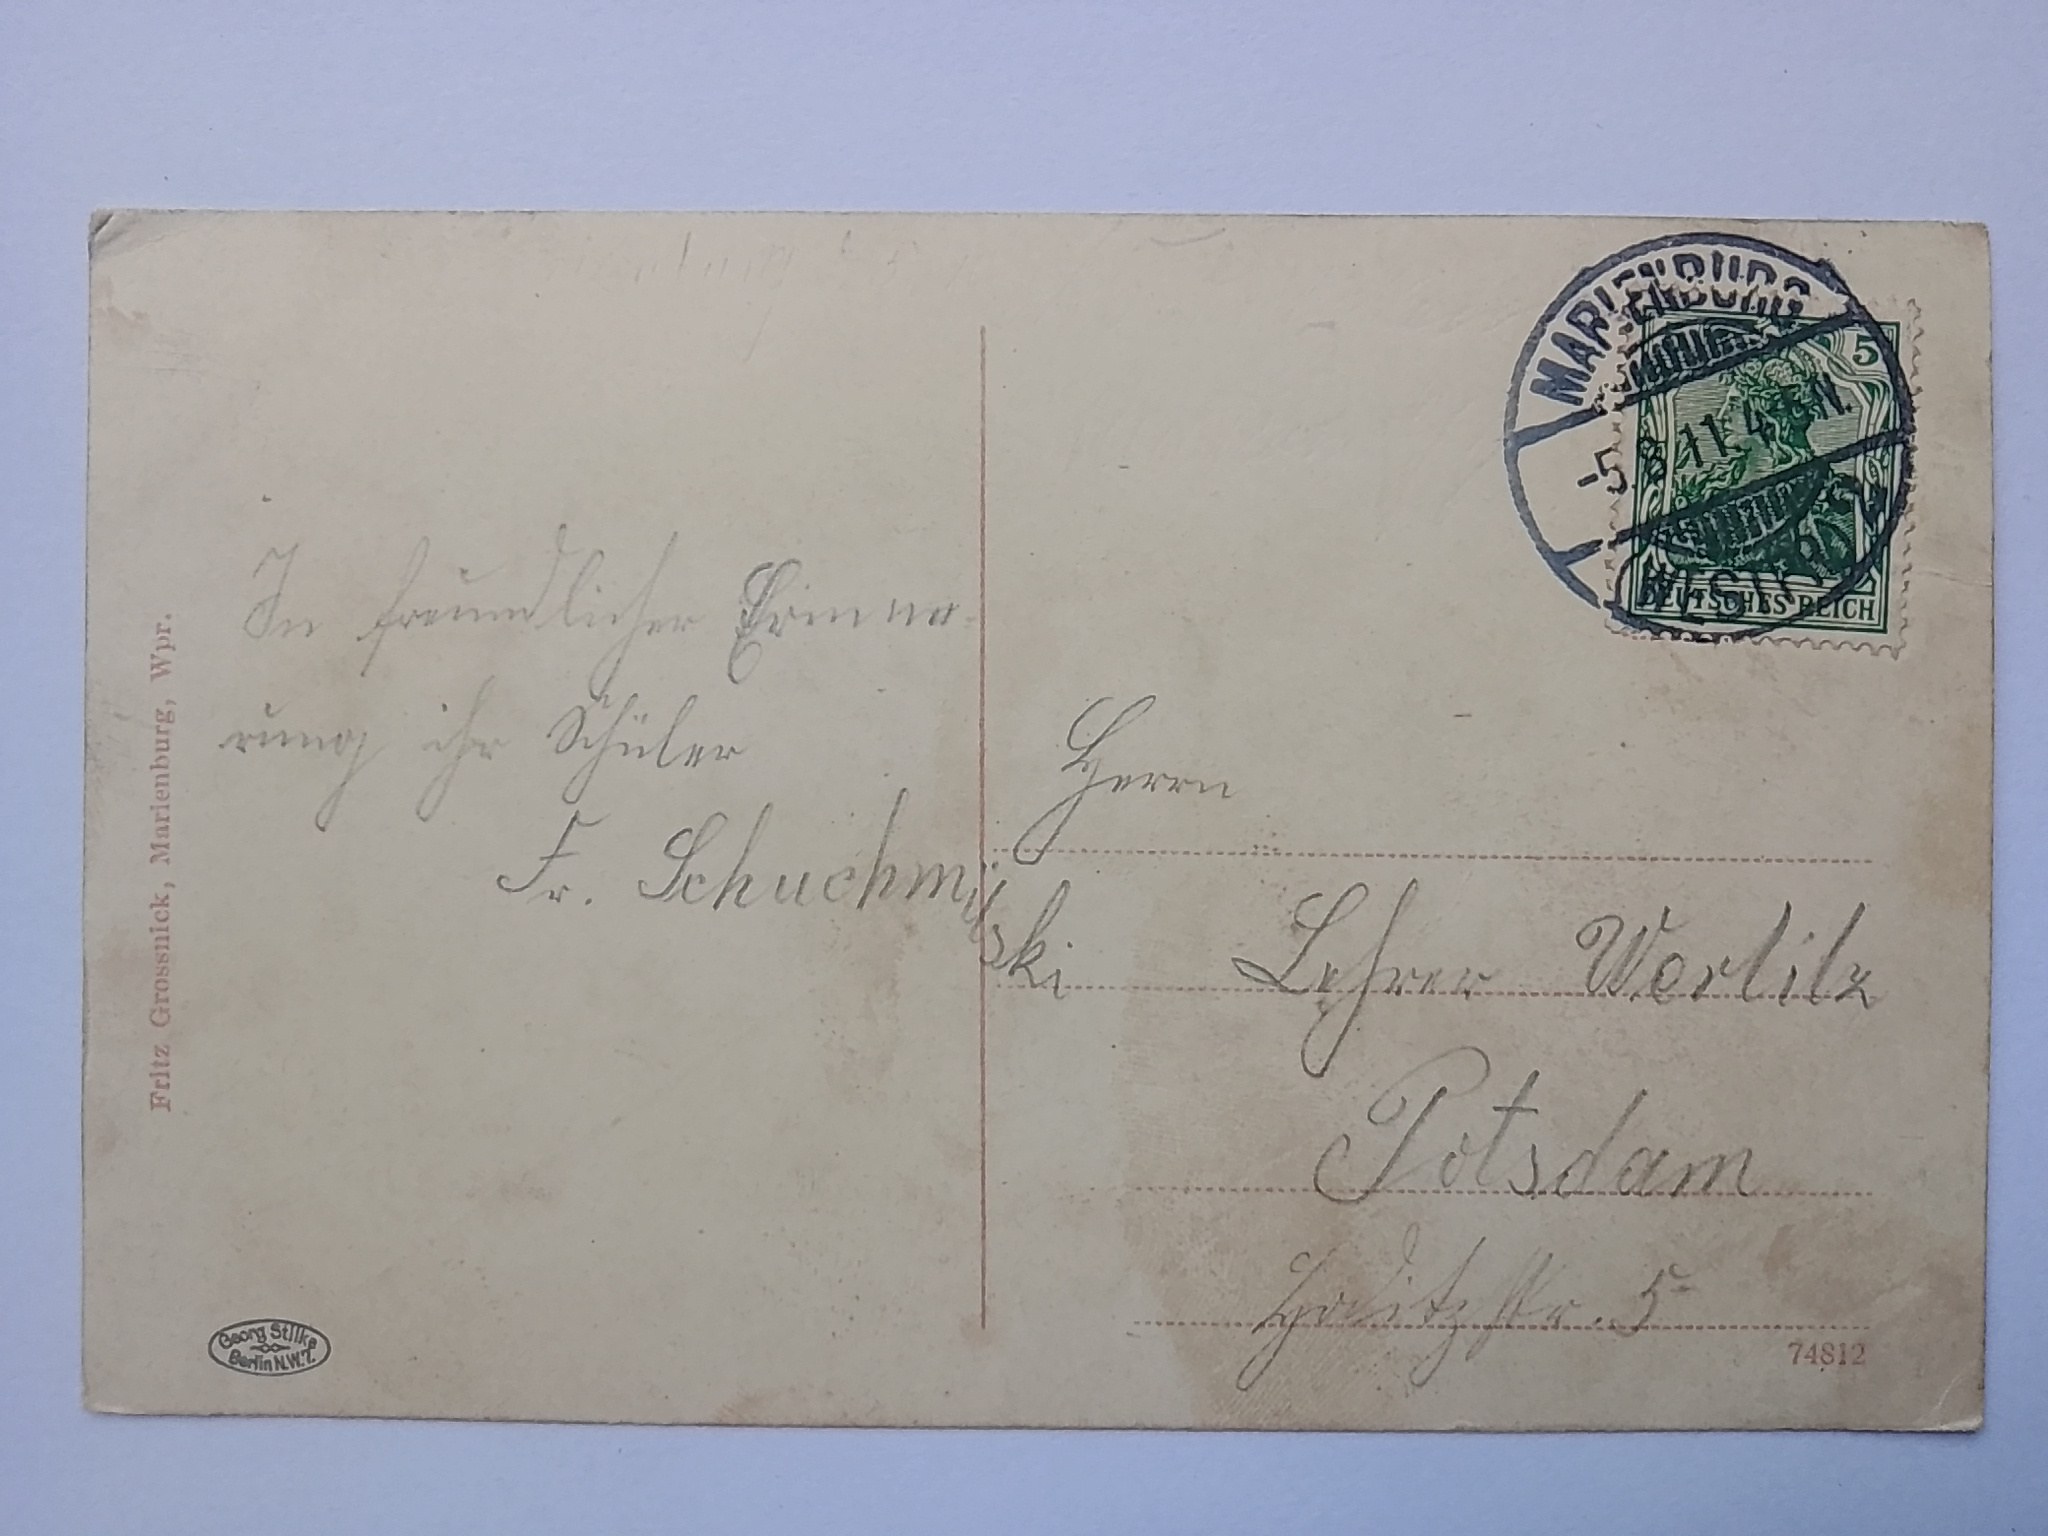 MARIENBURG
-5.8.11.4-5N.
5
DEUTSCHES REICH
In freundlicher Erinne-
rung ihr Schüler
Fr. Schuchmilski
Herrn
Lehrer Werlitz
Potsdam
str. 5
Fritz Grossnick, Marienburg, Wpr.
Georg Stilke
Berlin N.W.7.
74812